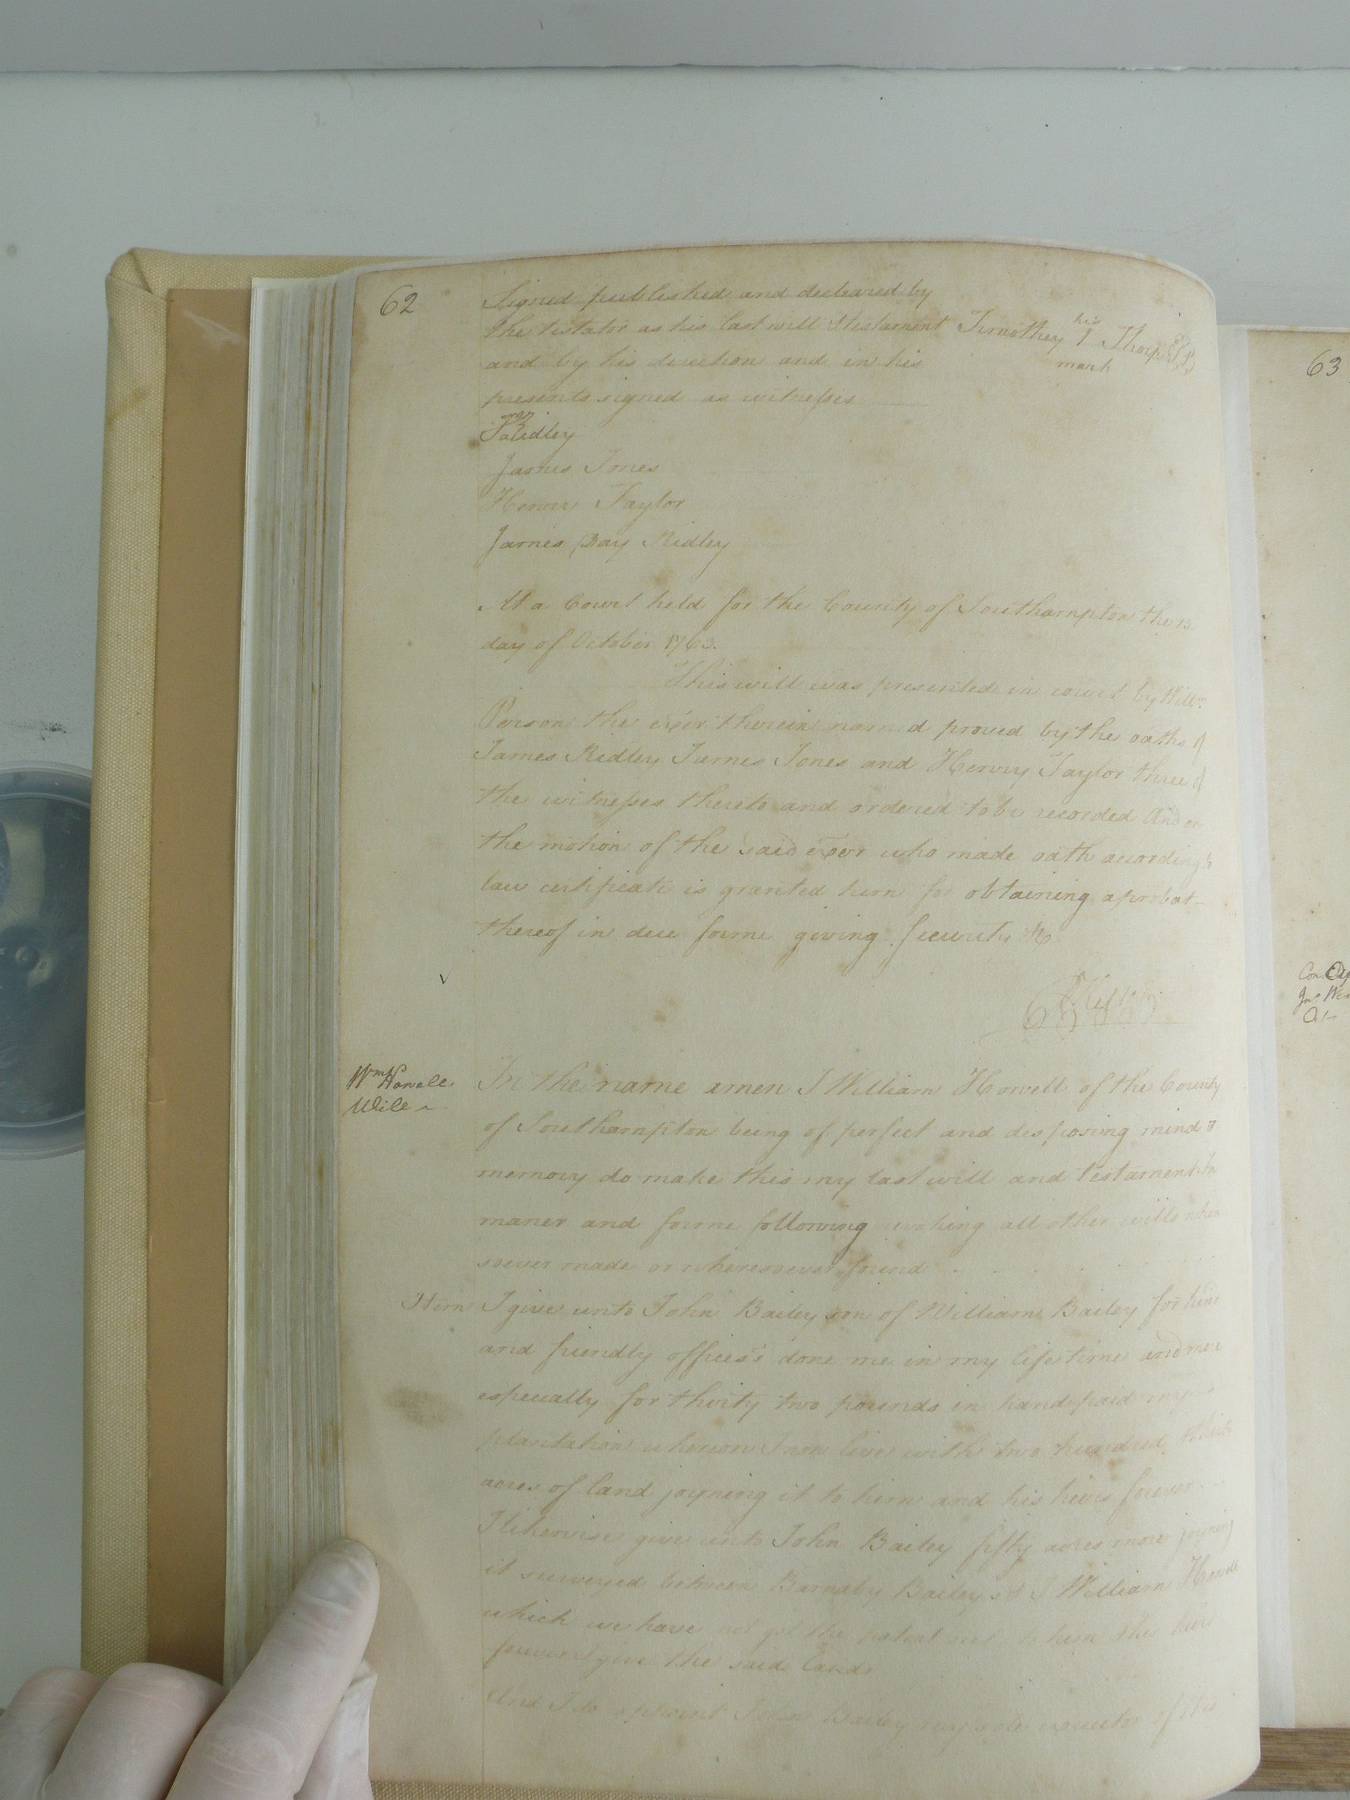 62
Signed published and declared by
the testator as his last will & testament Timothey his T Thorp
and by his direction and in his mark
presents signed as witnesses
Jas Ridley
James Jones
Henry Taylor
James Day Ridley
At a Court held for the County of Southampton the 13
day of October 1763.
This will was presented in court by Willm
Person the exor therein named proved by the oaths of
James Ridley James Jones and Henry Taylor three of
the witnesses thereto and ordered to be recorded And on
the motion of the said exor who made oath according to
law certificate is granted him for obtaining a probat
thereof in due forme giving security &c
Wm Howell
Will
In the name amen I William Howell of the County
of Southampton being of perfect and disposing mind &
memory do make this my last will and testament in
maner and forme following revoking all other wills when
soever made or wheresoever found
Item I give unto John Bailey son of William Bailey for his
and friendly offices's done me in my life time and more
especially for thirty two pounds in hand paid my
plantation whereon I now live with two hundred thirty
acres of land joyning it to him and his heirs forever
I likewise give unto John Bailey fifty acres more joyning
it surveyed between Barnaby Bailey & I William Howell
which we have not got the patent
forever I give the said land
And I do appoint John Bailey my sole executor of this
63